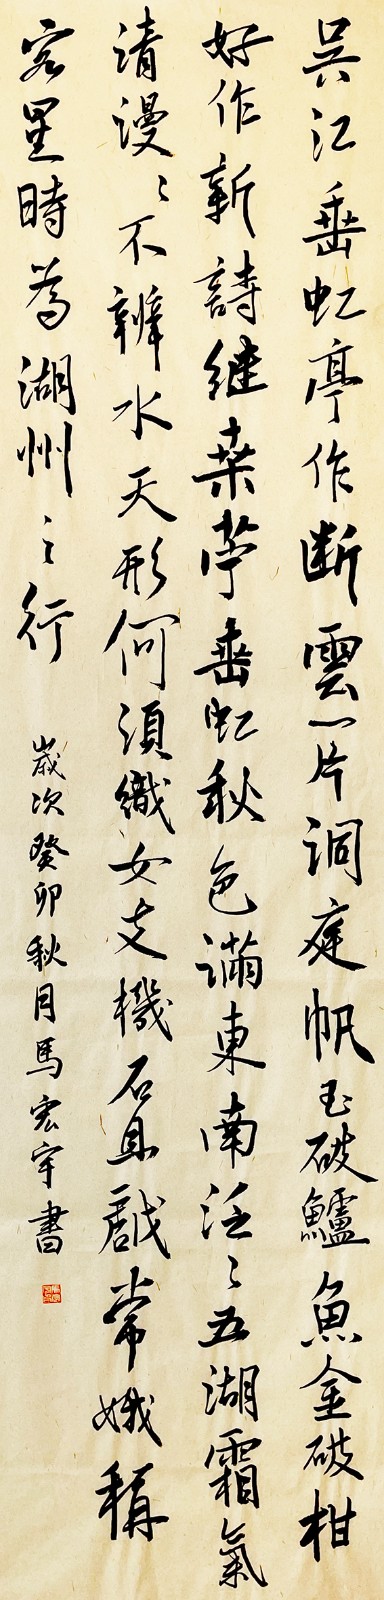 吳江垂虹亭作斷雲一片洞庭帆玉破鱸魚金破柑
好作新詩継桒苧垂虹秋色滿東南泛〻五湖霜氣
清漫〻不辨水天形何須織女支機石且戲常娥稱
客星時為湖州之行
歲次癸卯秋月馬宏宇書